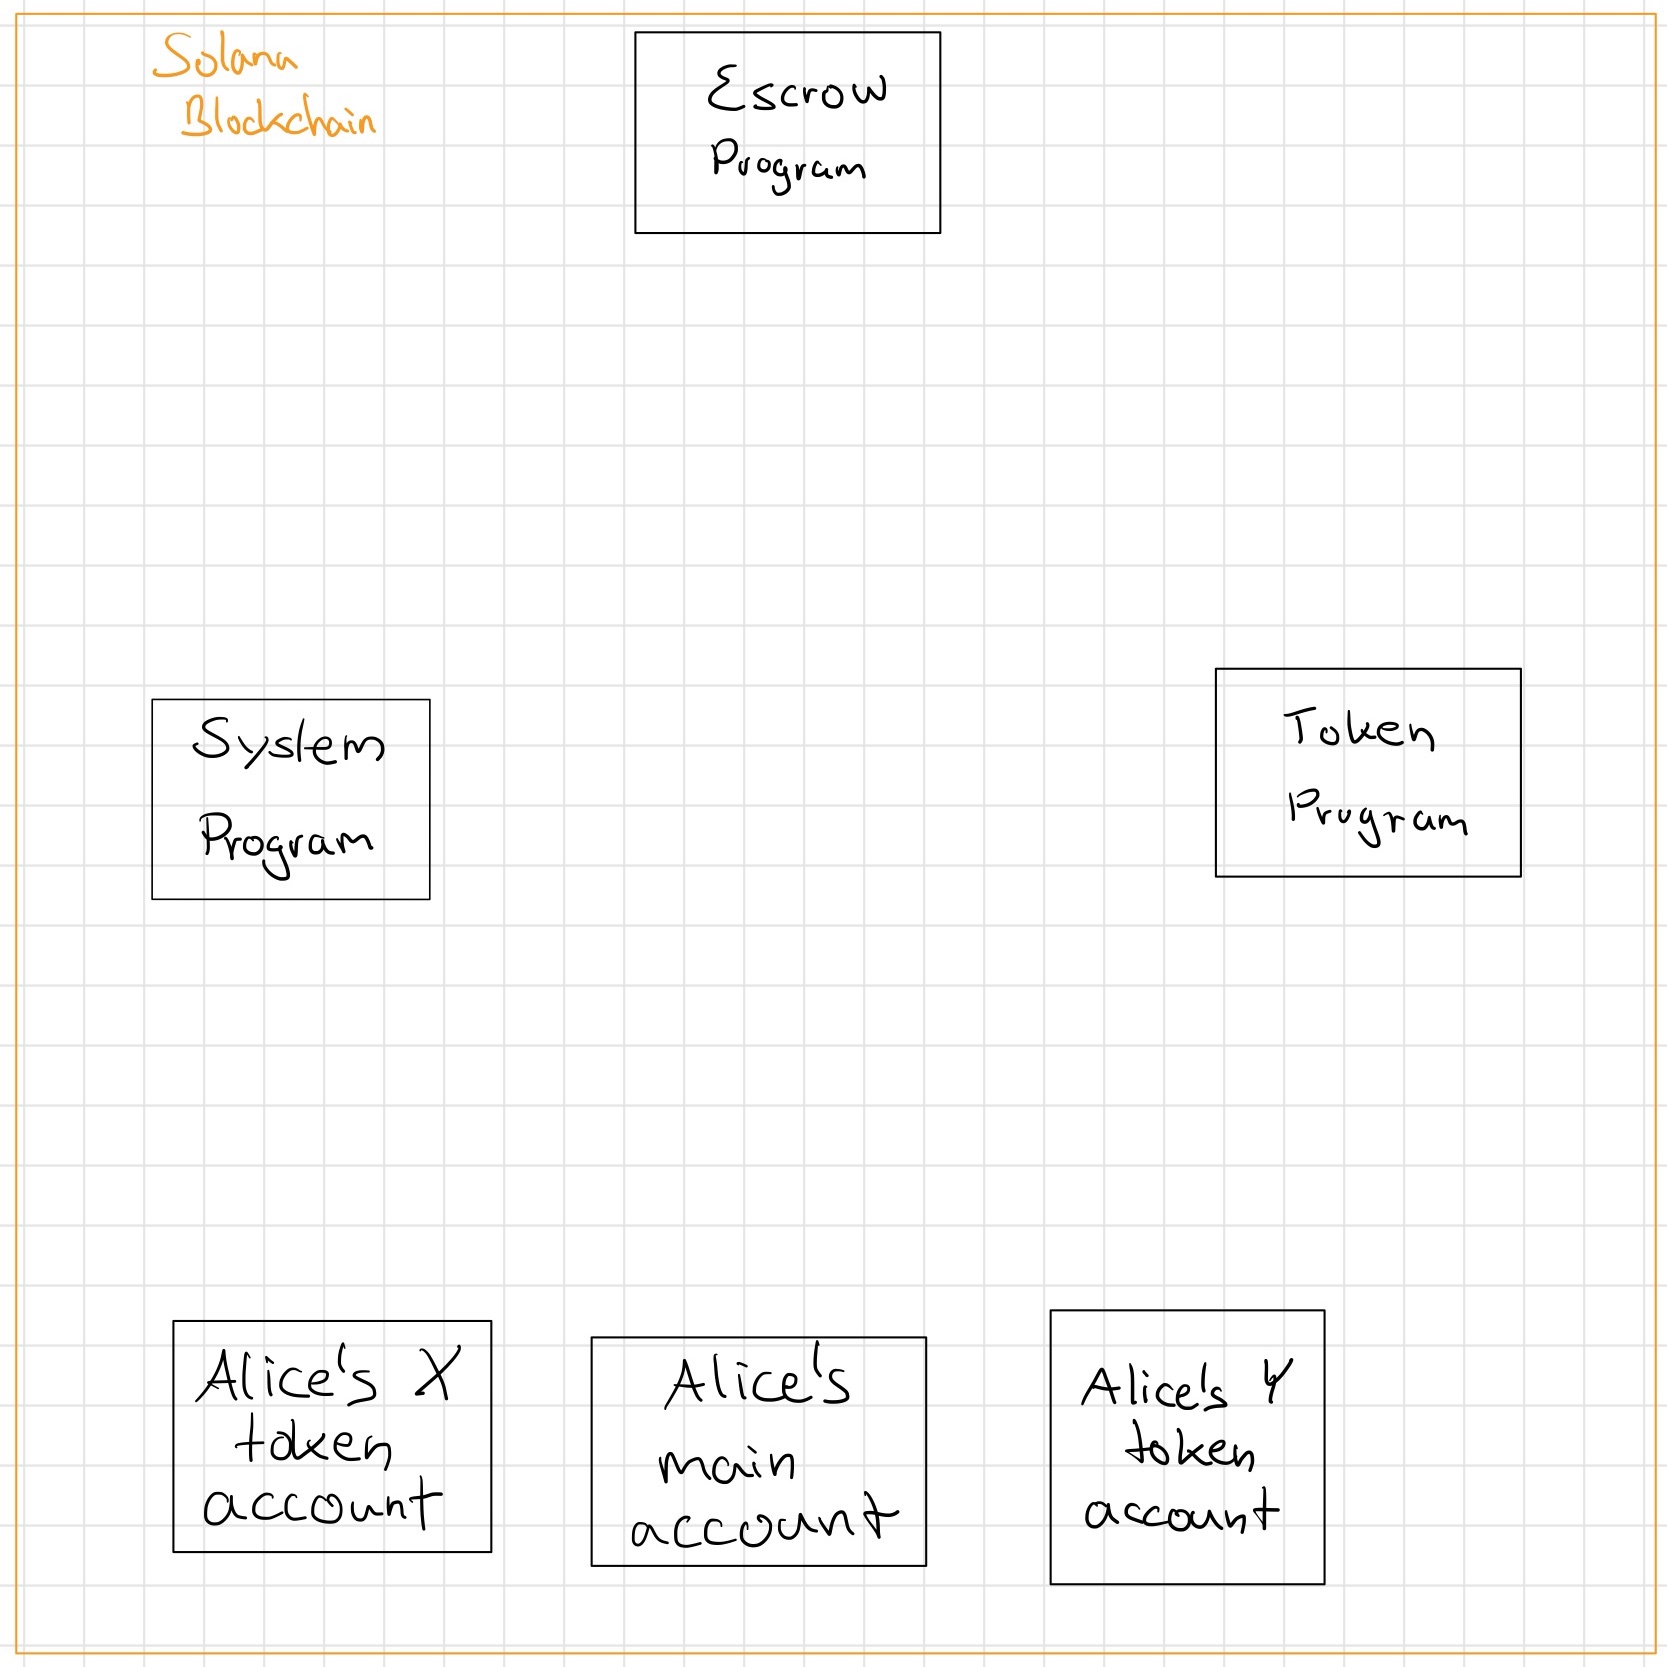 Solana
Blockchain
Escrow
Program
System
Program
Token
Program
Alice's X
token
account
Alice's
main
account
Alice's Y
token
account